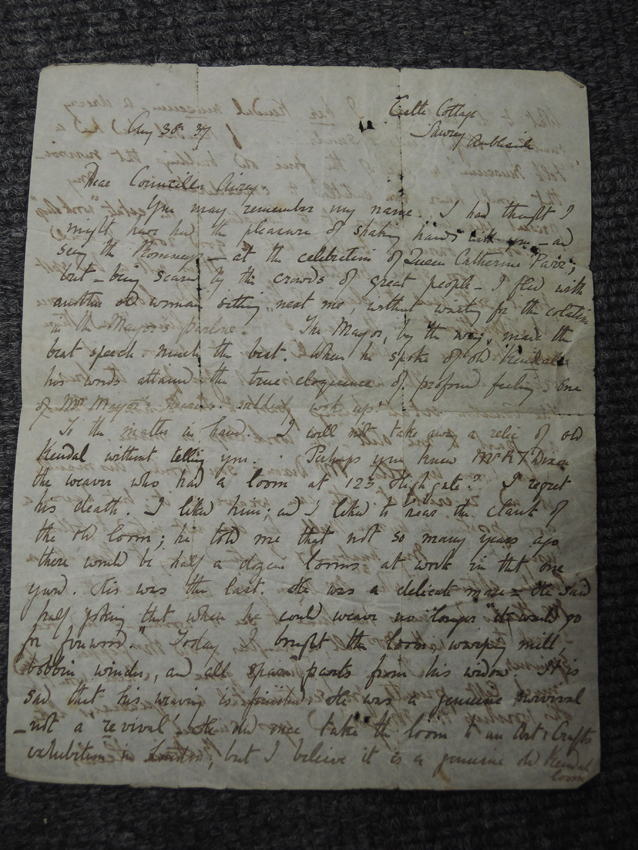 Castle Cottage
Sawrey Ambleside
Aug 30. 37
Dear Councillor
You may remember my name. I had thought I
might have had the pleasure of shaking hands with you – and
seeing the Romney – at the celebration of Queen Catherine Parr;
but – being scared by the crowds of great people – I fled with
another old woman sitting next me, without waiting for the collation
in the Mayor's parlour. The Mayor, by the way, made the
best speech – much the best. When he spoke of old Kendal
his words attained the true eloquence of profound feeling; one
of Mr Mayor's
To the matter in hand. I will not take away a relic of old
Kendal without telling you. Perhaps you knew Mr
the weaver who had a loom at 123 Highgate? I regret
his death. I liked him; and I liked to hear the clack of
the old loom; he told me that not so many years ago
there would be half a dozen looms at work in that one
yard. His was the last. He was a delicate man – He said
half joking that when he could weave no longer "it would go
for firewood." Today I bought the loom, warping mill,
bobbin winder, and all spare parts from his widow. It is
sad that his weaving is finished. He was a genuine survival
– not a revival! He did once take the loom to an Art & Crafts
exhibition in London; but I believe it is a genuine old Kendal
loom